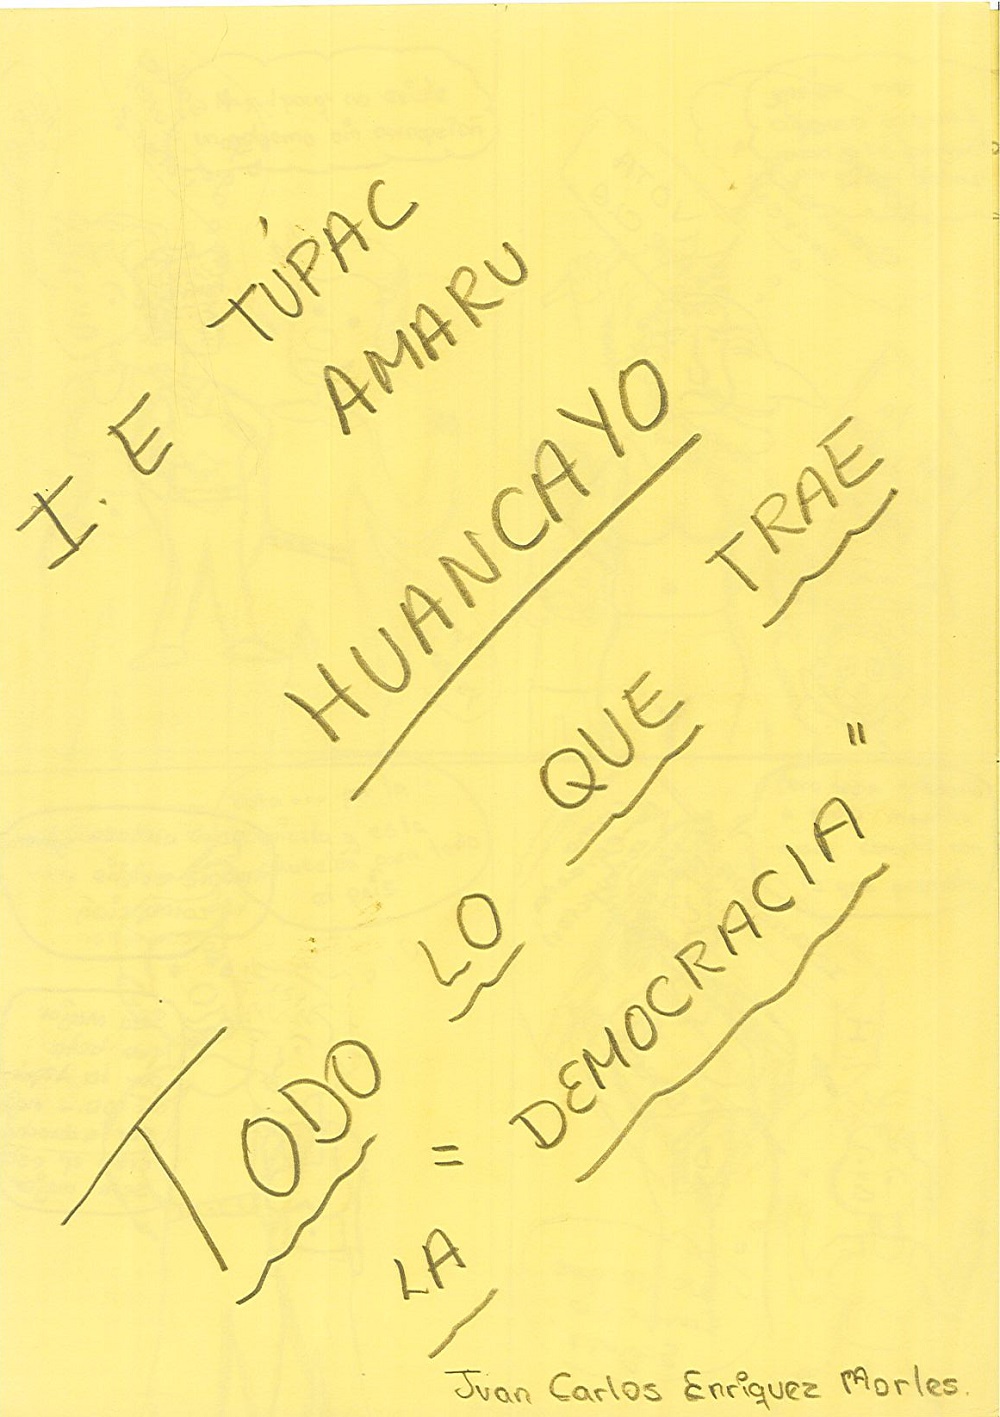 I.E TÚPAC
AMARU
HUANCAYO
TODO LO QUE TRAE
= LA DEMOCRACIA "
Juan Carlos Enriquez Morles.